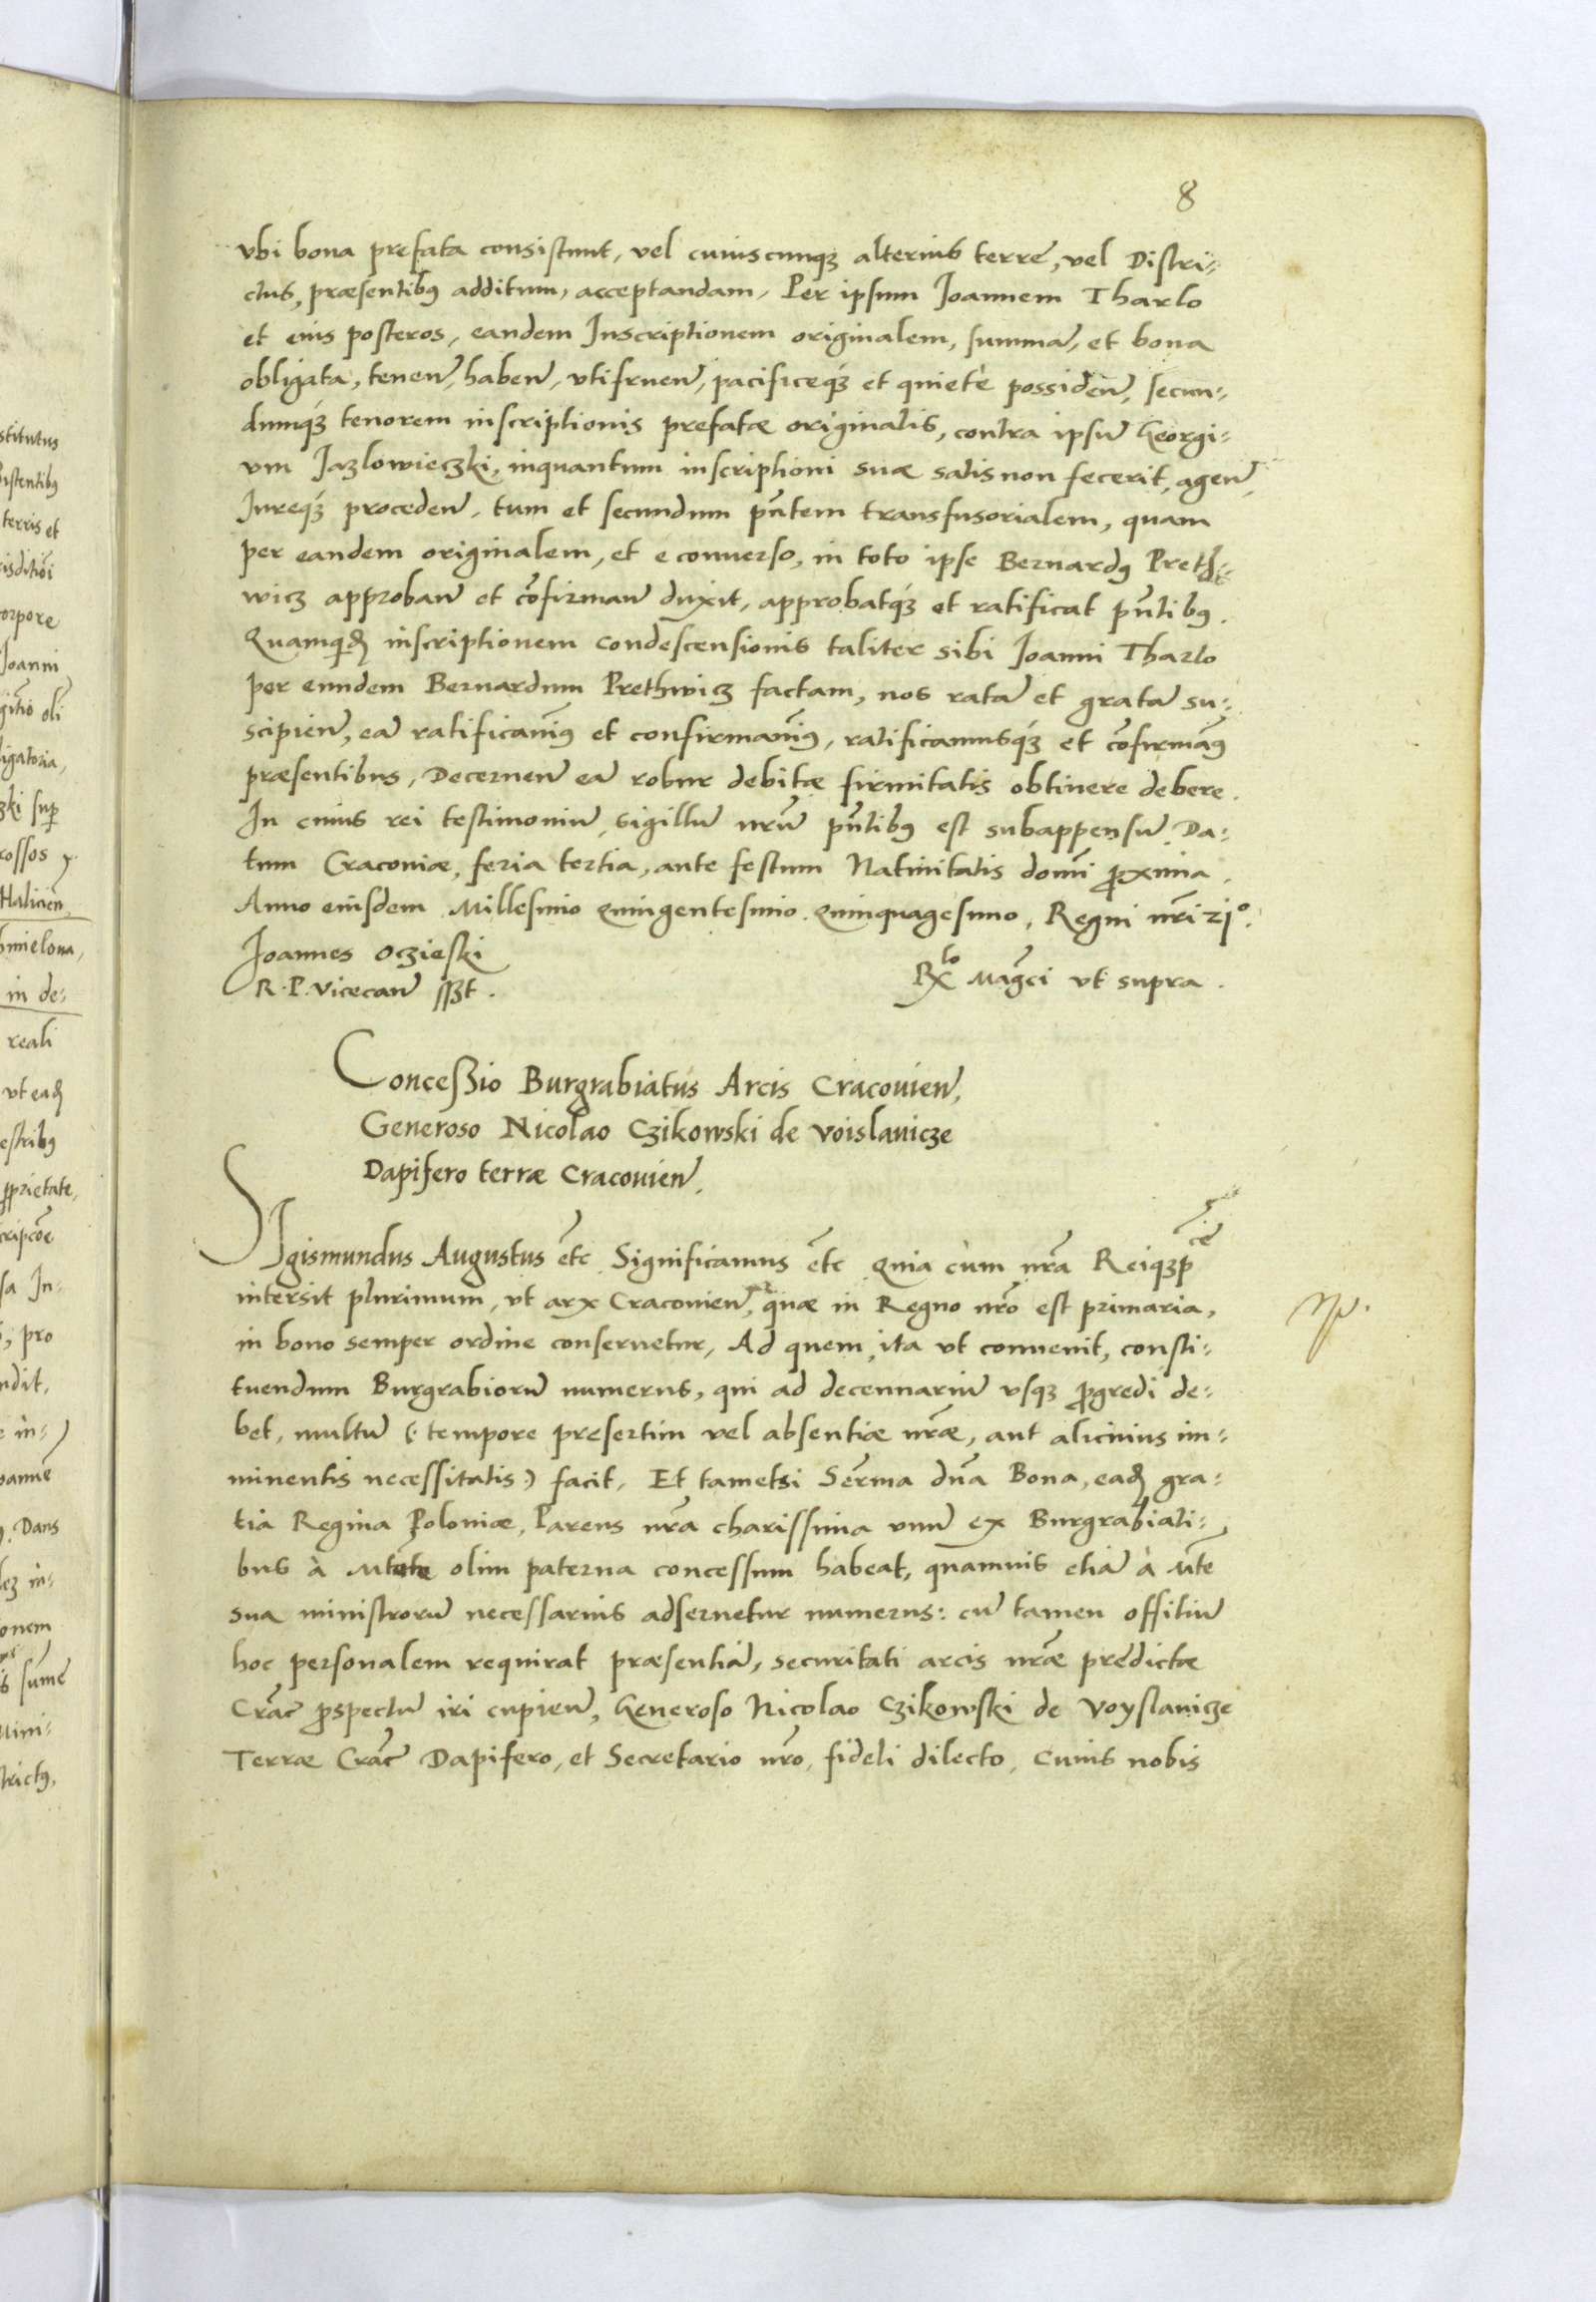 8
vbi bona prefata consistunt, vel cuiuscunqȝ alterius terrę, vel Distri-
ctus, præsentibꝰ additum, acceptandam, Per ipsum Joannem Tharlo
et eius posteros, eandem Inscriptionem originalem, summã, et bona
obligata, teneñ, habeñ, vtifrueñ, pacificeqȝ et quietè possideñ, secun-
dumqȝ tenorem inscriptionis prefatæ originalis, contra ipsũ Georgi-
um Jazlowieczki, inquantum inscriptioni suæ satis non fecerit, ageñ,
Jureqȝ procedeñ, tum et secundum pñtem transfusorialem, quam
per eandem originalem, et e conuerso, in toto ipse Bernardꝰ Preth-
wicz approbañ et cõfirmañ duxit, approbatqȝ et ratificat pñtibꝰ.
Quamqđ inscriptionem condescensionis taliter sibi Joanni Tharlo
per eundem Bernardum Prethwicz factam, nos ratã et gratã su-
scipieñ, eã ratificanđꝰ et confirmanđꝰ, ratificamusqȝ et cõfirmãꝰ
præsentibus, Decerneñ eã robur debitæ firmitatis obtinere debere.
In cuius rei testimoniũ, sigillũ nrũ pñtibꝰ est subappensũ Da-
tum Cracouiæ, feria tertia, ante festum Natiuitatis domĩ ꝓxima.
Anno eiusdem Millesimo quingentesimo quinquagesimo, Regni nrĩ 21º.
Joannes Oczieski
R. P. Vicecañ sszt.
Rlo Magci vt supra.
Conceßio Burgrabiatus Arcis Cracouieñ,
Generoso Nicolao Czikowski de Voislauicze
Dapifero terræ Cracouieñ.
SIgismundus Augustus etc̃ Significamus etc̃ Quia cùm nrã Reiqȝ pcẽ
intersit plurimum, vt arx Cracouieñ, quæ in Regno nrõ est primaria,
in bono semper ordine conseruetur, Ad quem, ita vt conuenit, consti-
tuendum Burgrabiorũ numerus, qui ad decennariũ vsqȝ ꝓgredi de-
bet, multũ (: tempore presertim vel absentiæ nrẽ, aut alicuius im-
minentis necessitatis:) facit, Et tametsi Serm̃a dña Bona, eađ gra-
tia Regina Poloniæ, Parens nrã charissima vnũ ex Burgrabiati-
bus à Mte olim paterna concessum habeat, quamuis etiã à Mte
sua ministrorũ necessarius adseruetur numerus: cũ tamen offitiũ
hoc personalem requirat præsentiã, securitati arcis nrẽ predictæ
Crac̃ ꝓspectũ iri cupieñ, Generoso Nicolao Czikowski de Voyslauicze
Terræ Crac̃ Dapifero, et Secretario nrõ, fideli dilecto, cuius nobis